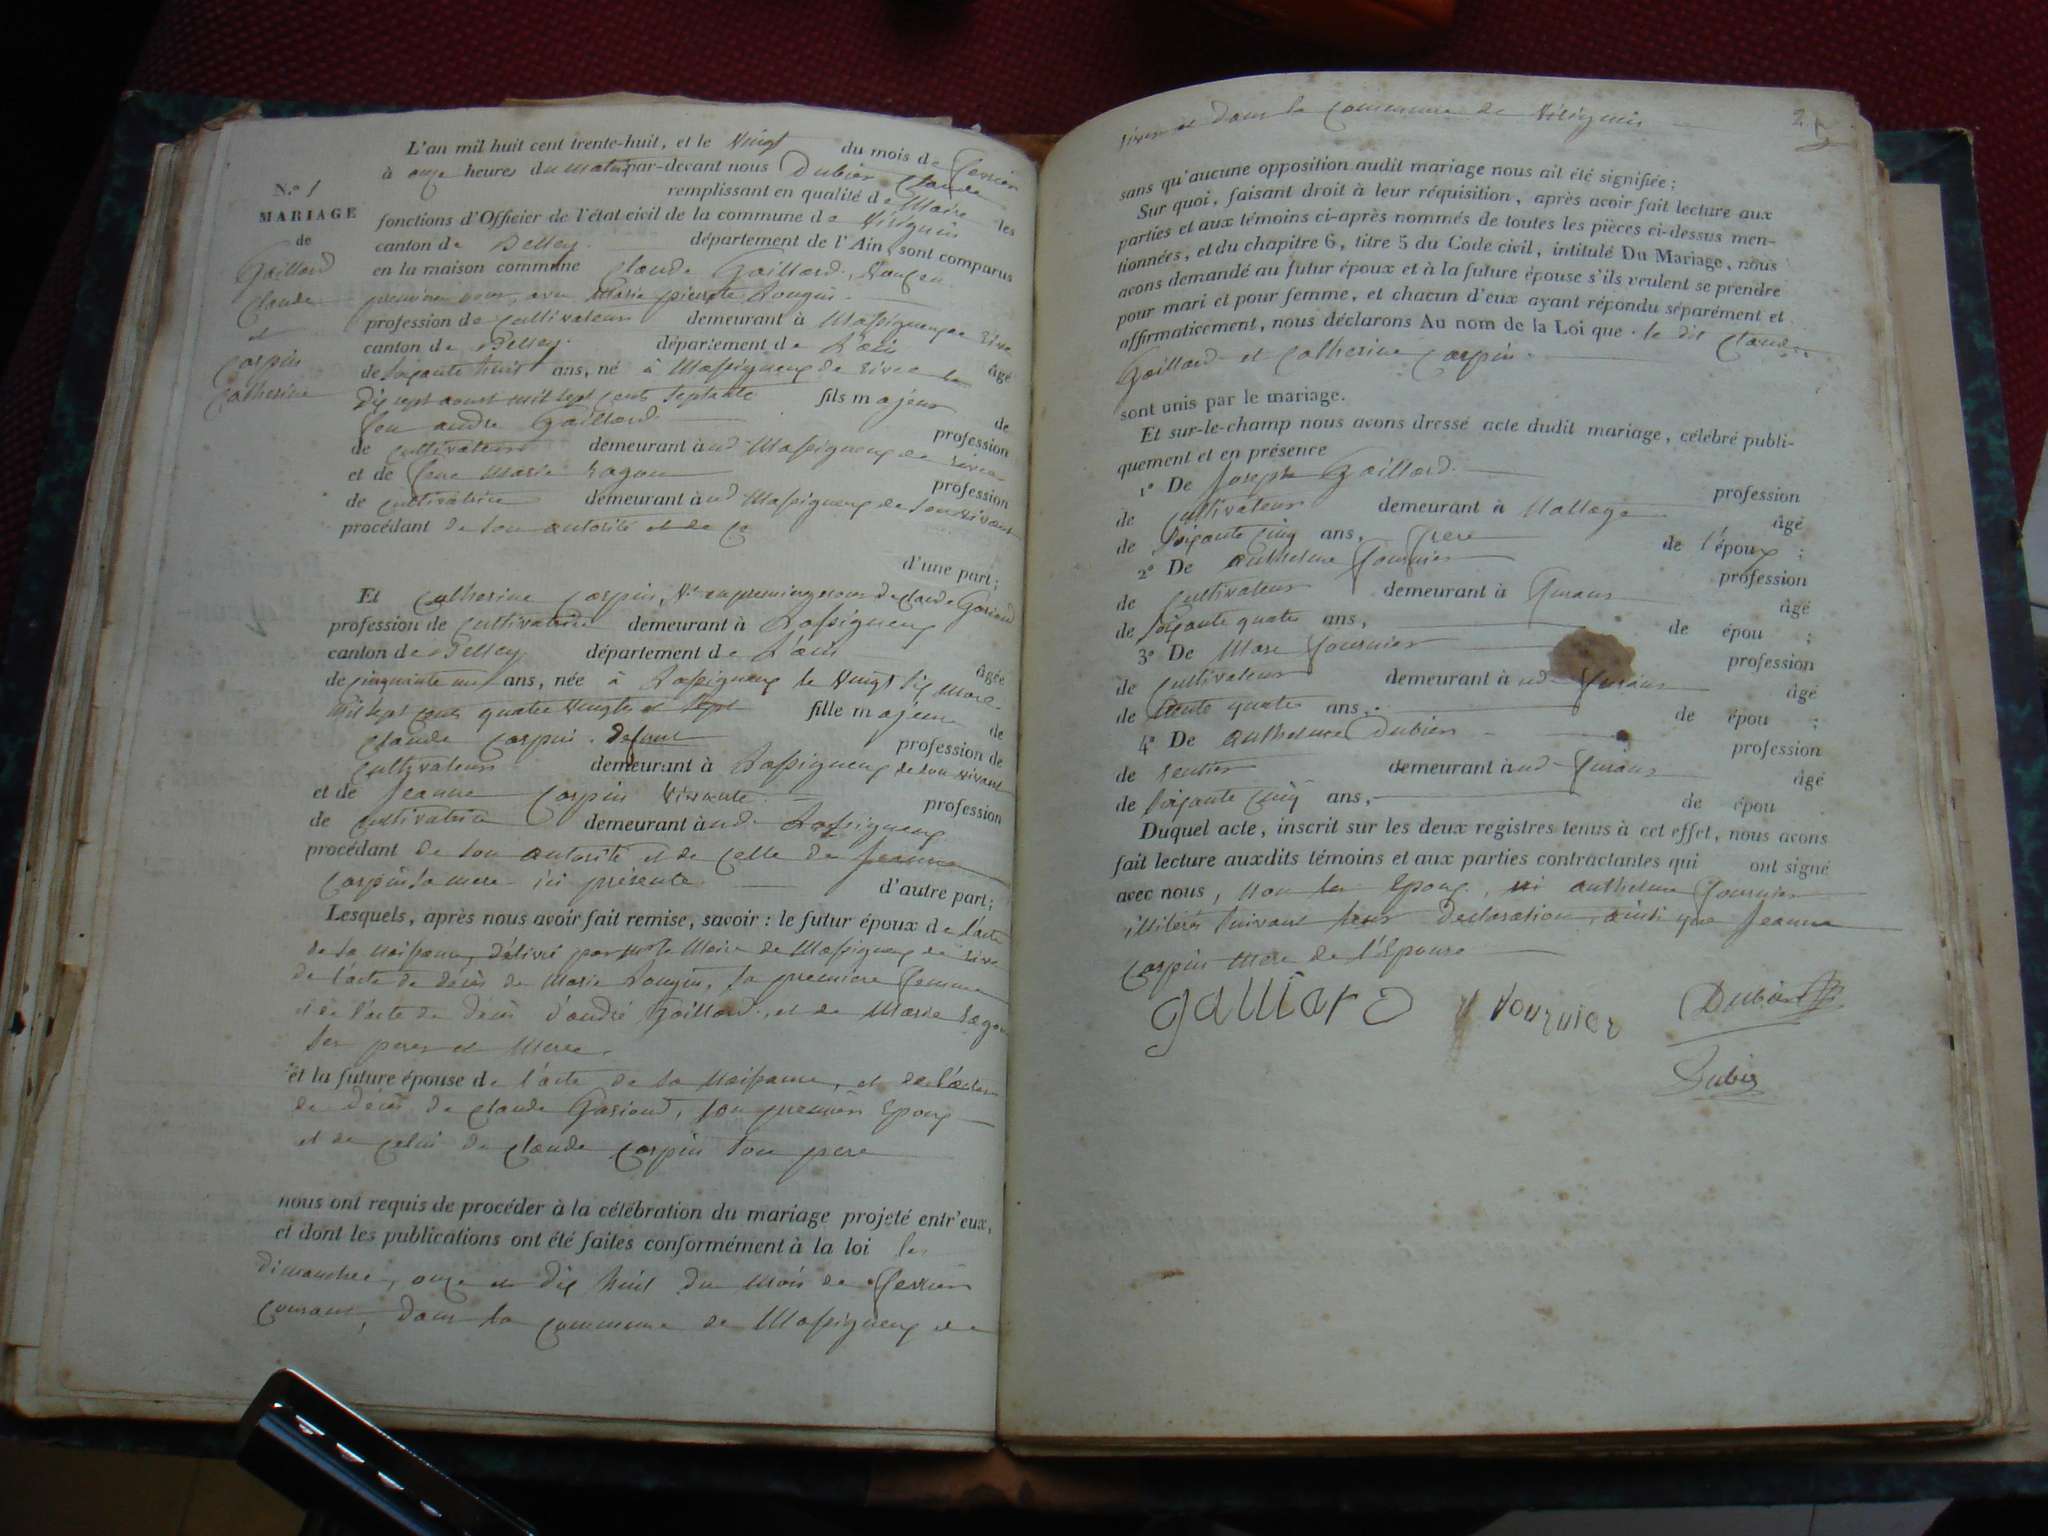 L'an mil huit cent trente-huit, et le vingt du mois de fevrier
à onze heures du matin par-devant nous Dubier Claude
remplissant en qualité de Maire les
fonctions d'Officier de l'état civil de la commune de Virignin
canton de Belley. département de l'Ain, sont comparus
en la maison commune Claude Gaillard,
N.º 1
MARIAGE
de
Gaillard
Claude
et
Carpin
Catherine
premiere avec Marie pierrete Rougin.
profession de Cultivateur demeurant à Massigneux de rive
canton de Belley. département de L'ain âgé
de soixante huit ans, né à Massigneux de rives le
dix sept aoust mil sept cents septante fils majeur de
feu andré Gaillard profession
de cultivateur demeurant à ud Massigneux de rives
et de feue Marie profession
de cultivatrice demeurant à ud Massigneux de son vivant
procédant de son autorité et de
d'une part;
Et Catherine Carpin, Vve en premiere de Claude
profession de cultivatrice demeurant à Rassigneux
canton de Belley département de L'ain âgée
de cinquante ans, née à Rassigneux le vingt six mars
Mil sept cents quatre vingts et sept fille majeure de
Claude Carpin. defunt profession de
cultivateur demeurant à Rassigneux de son vivant
et de Jeanne Carpin vivante. profession
de cultivatrice demeurant à ud Rassigneux
procédant de son autorité et de celle de Jeanne
Carpin sa mere ici présente. d'autre part;
Lesquels, après nous avoir fait remise, savoir: le futur époux de l'acte
de sa naissance, délivré par Mr le Maire de Massigneux de rive
de l'acte de décès de Marie Rougin, sa premiere femme
et de l'acte de décès d'andré Gaillard, et de Marie
ses peres et Mere.
et la future épouse de l'acte de sa naissance, et de l'acte
de décès de Claude, son premier Epoux
et de celui de Claude Carpin son pere
nous ont requis de procéder à la célébration du mariage projeté entr'eux,
et dont les publications ont été faites conformément à la loi les
dimanches, onze et dix huit du mois de fevrier
courant, dans la commune de Massigneux de
rives et dans la commune de Virignin
2
sans qu'aucune opposition audit mariage nous ait été signifiée;
Sur quoi, faisant droit à leur réquisition, après avoir fait lecture aux
parties et aux témoins ci-après nommés de toutes les pièces ci-dessus men-
tionnées, et du chapitre 6, titre 5 du Code civil, intitulé Du Mariage, nous
avons demandé au futur époux et à la future épouse s'ils veulent se prendre
pour mari et pour femme, et chacun d'eux ayant répondu séparément et
affirmativement, nous déclarons Au nom de la Loi que le dit Claude
Gaillard et Catherine Carpin.
sont unis par le mariage.
Et sur-le-champ nous avons dressé acte dudit mariage, célébré publi-
quement et en présence
1º De Joseph Gaillard. profession
de cultivateur demeurant à Nattage âgé
de soixante cinq ans, frere de l'époux;
2º De anthelme fournier profession
de cultivateur demeurant à âgé
de soixante quatre ans, de épou ;
3º De Marc fournier profession
de cultivateur demeurant à ud âgé
de trente quatre ans, de épou ;
4º De anthelme Dubier profession
de rentier demeurant à ud âgé
de soixante cinq ans, de épou
Duquel acte, inscrit sur les deux registres tenus à cet effet, nous avons
fait lecture auxdits témoins et aux parties contractantes qui ont signé
avec nous, non les Epoux, ni anthelme fournier
illiterés suivant leur declaration, ainsi que Jeanne
Carpin Mere de l'Epouse
Galliard
fournier
Dubier
Dubier